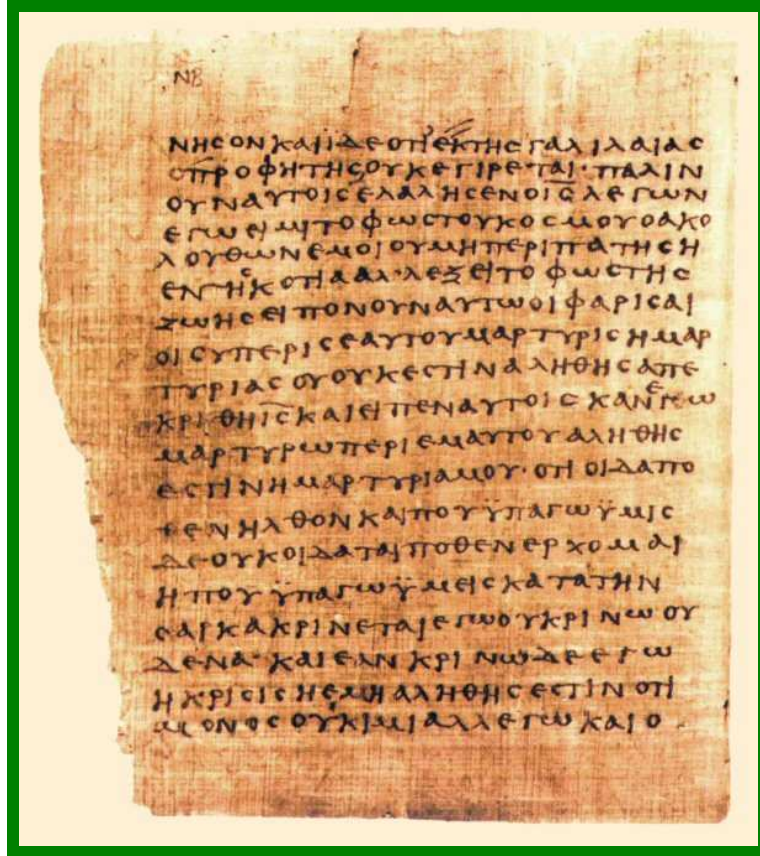 ΝΒ
ΝΗCΟΝΚΑΙΪΔΕΟΤΙΕΚΤΗCΓΑΛΙΛΑΙΑC
ΟΠΡΟΦΗΤΗCΟΥΚΕΓΙΡΕΤΑΙ·ΠΑΛΙΝ
ΟΥΝΑΥΤΟΙCΕΛΑΛΗCΕΝΟΙ̅C̅ΛΕΓΩΝ
ΕΓΩΕΙΜΙΤΟΦΩCΤΟΥΚΟCΜΟΥΟΑΚΟ
ΛΟΥΘΩΝΕΜΟΙΟΥΜΗΠΕΡΙΠΑΤΗCΗ
ΕΝΤΗCΚΟΤΙΑΑΛΛΕΞΕΙΤΟΦΩCΤΗC
ΖΩΗCΕΙΠΟΝΟΥΝΑΥΤΩΟΙΦΑΡΙCΑΙ
ΟΙCΥΠΕΡΙCΕΑΥΤΟΥΜΑΡΤΥΡΙCΗΜΑΡ
ΤΥΡΙΑCΟΥΟΥΚΕCΤΙΝΑΛΗΘΗCΑΠΕ
ΚΡΙΘΗΙ̅C̅ΚΑΙΕΙΠΕΝΑΥΤΟΙCΚΑΝΕΓΩ
ΜΑΡΤΥΡΩΠΕΡΙΕΜΑΥΤΟΥΑΛΗΘΗC
ΕCΤΙΝΗΜΑΡΤΥΡΙΑΜΟΥ·ΟΤΙΟΙΔΑΠΟ
ΘΕΝΗΛΘΟΝΚΑΙΠΟΥΫΠΑΓΩΫΜΙC
ΔΕΟΥΚΟΙΔΑΤΑΙΠΟΘΕΝΕΡΧΟΜΑΙ
ΗΠΟΥΫΠΑΓΩΫΜΕΙCΚΑΤΑΤΗΝ
CΑΡΚΑΚΡΙΝΕΤΑΙΕΓΩΟΥΚΡΙΝΩΟΥ
ΔΕΝΑ·ΚΑΙΕΑΝΚΡΙΝΩΔΕΕΓΩ
ΗΚΡΙCΙCΗΕΜΗΑΛΗΘΗCΕCΤΙΝΟΤΙ
ΜΟΝΟCΟΥΚΙΜΙΑΛΛΕΓΩΚΑΙΟ